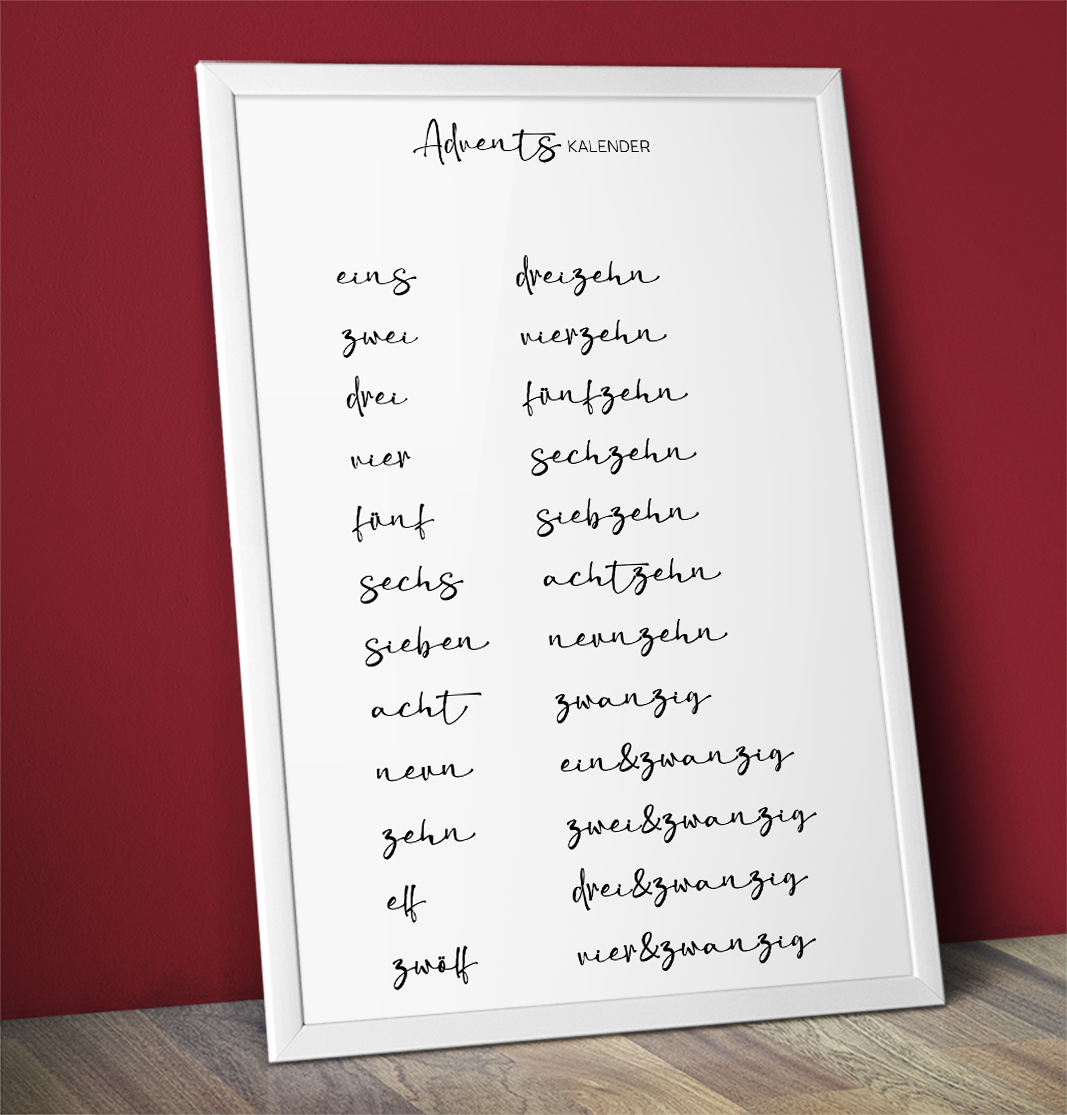 Advents KALENDER
eins
zwei
drei
vier
fünf
sechs
sieben
acht
neun
zehn
elf
zwölf
dreizehn
vierzehn
fünfzehn
sechzehn
siebzehn
achtzehn
neunzehn
zwanzig
ein&zwanzig
zwei&zwanzig
drei&zwanzig
vier&zwanzig